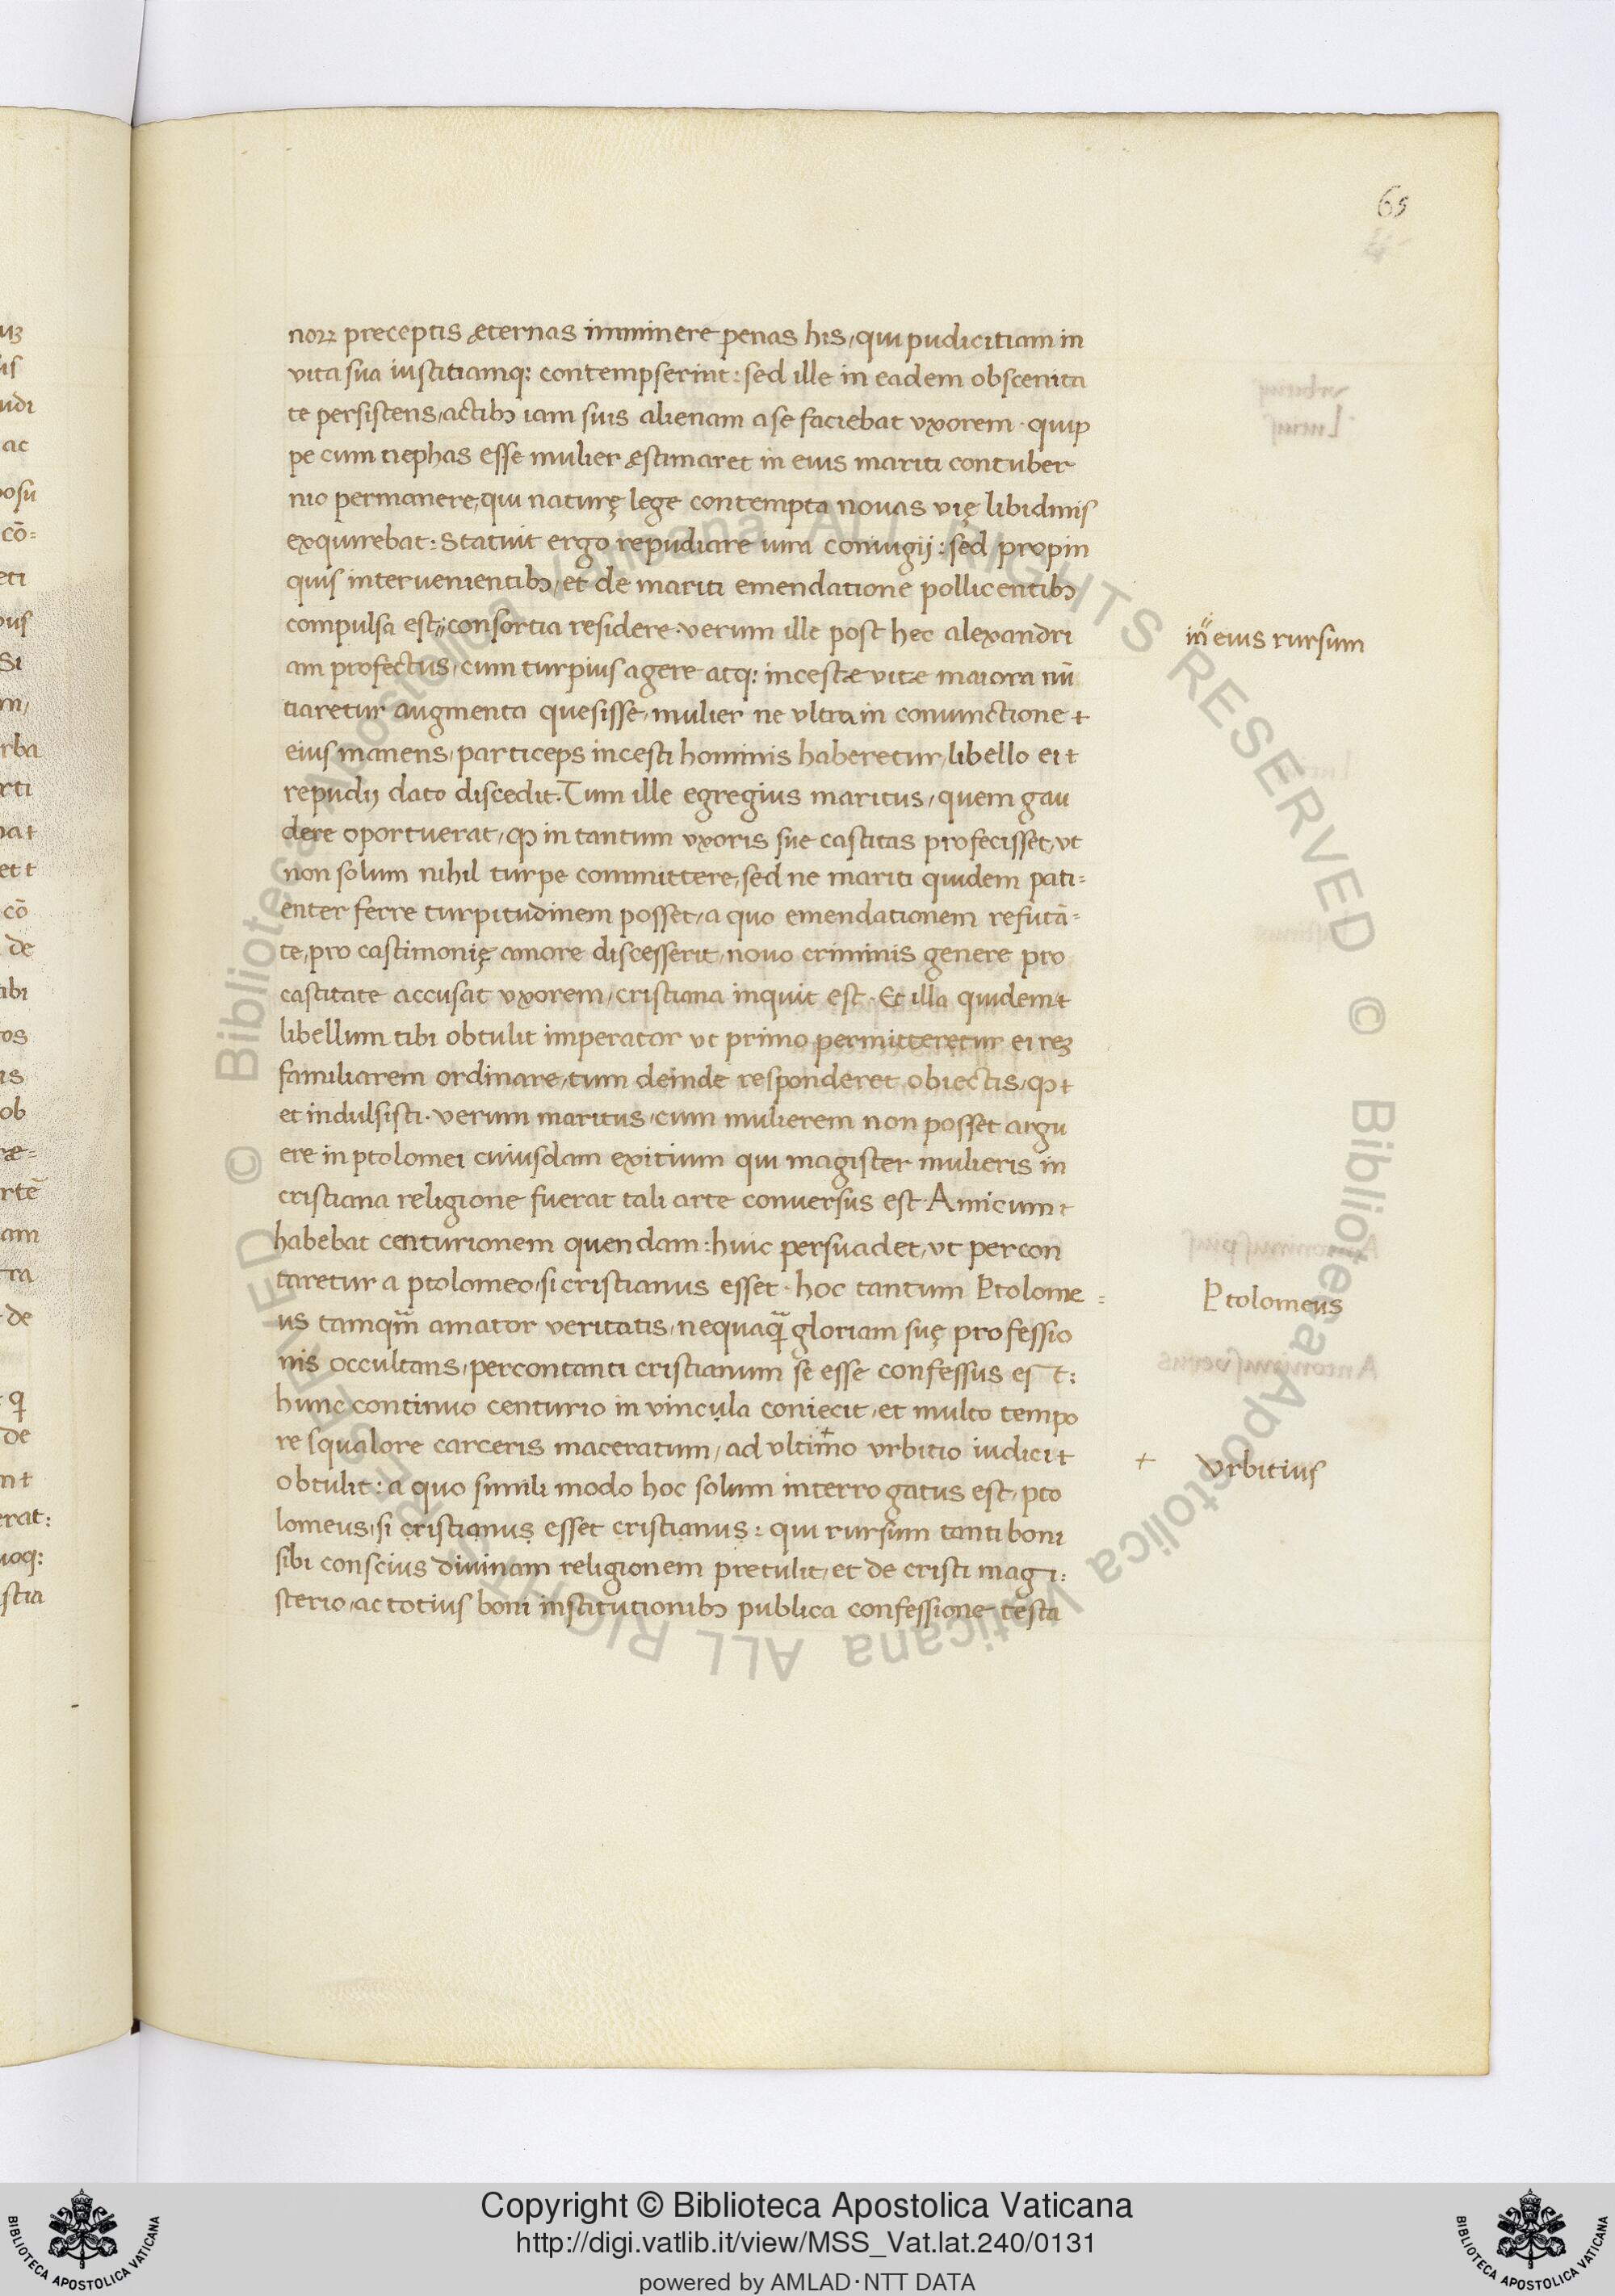 65
norꝝ preceptis æternas imminere penas his, qui pudicitiam in
vita sua iustitiamq; contempserint: sed ille in eadem obscenita
te persistens, actibꝫ iam suis alienam a se faciebat vxorem. quip
pe cum nephas esse mulier æstimaret in eius mariti contuber
nio permanere, qui naturę lege contempta novas vię libidinis
exquirebat: Statuit ergo repudiare iura coniugij: sed propin
quis intervenientibꝫ, et de mariti emendatione pollicentibꝫ
compulsa est,,consortia residere. verum ille post hec alexandri
in̋ eius rursum
am profectus, cum turpius agere atq; incestæ vitæ maiora nū
tiaretur augmenta quesisse, mulier ne vltra in coniunctione +
eius manens, particeps incesti hominis haberetur, libello ei +
repudij dato discedit. Tum ille egregius maritus, quem gau
dere oportuerat, ꝙ in tantum vxoris sue castitas profecisset, vt
non solum nihil turpe committere, sed ne mariti quidem pati=
enter ferre turpitudinem posset, a quo emendationem refutā=
te, pro castimonię amore discesserit, novo criminis genere pro
castitate accusat vxorem, cristiana inquit est. Et illa quidem +
libellum tibi obtulit imperator vt primo permitteretur ei rez
familiarem ordinare, tum deinde responderet obiectis, ꝙ +
et indulsisti. verum maritus, cum mulierem non posset argu
ere in ptolomei cuiusdam exitium qui magister mulieris in
cristiana religione fuerat tali arte conversus est. Amicum +
habebat centurionem quendam: huic persuadet, vt percon
taretur a ptolomeo, si cristianus esset. hoc tantum Ptolome =
Ptolomeus
us tamqm̄ amator veritatis, nequaq̄ gloriam suę professio
nis occultans, percontanti cristianum se esse confessus est:
hunc continuo centurio in vincula coniecit, et multo tempo
re squalore carceris maceratum, ad vltimo + vrbitio iudici +
+ Vrbitius
obtulit: a quo simili modo hoc solum interrogatus est, pto
lomeus, si cristianus esset cristianus: qui rursum tanti boni
sibi conscius divinam religionem pretulit, et de cristi magi:
sterio, ac totius boni institutionibꝫ publica confessione testa
Copyright © Biblioteca Apostolica Vaticana
http://digi.vatlib.it/view/MSS_Vat.lat.240/0131
powered by AMLAD·NTT DATA
BIBLIOTECA APOSTOLICA VATICANA
BIBLIOTECA APOSTOLICA VATICANA
© Biblioteca Apostolica Vaticana ALL RIGHTS RESERVED © Biblioteca Apostolica Vaticana ALL RIGHTS RESERVED